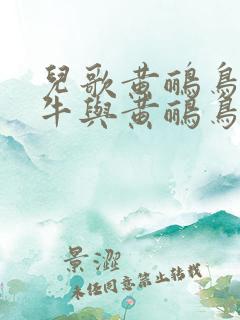 兒歌黃鸝鳥
牛與黃鸝鳥
景澀
未經同意禁止轉載